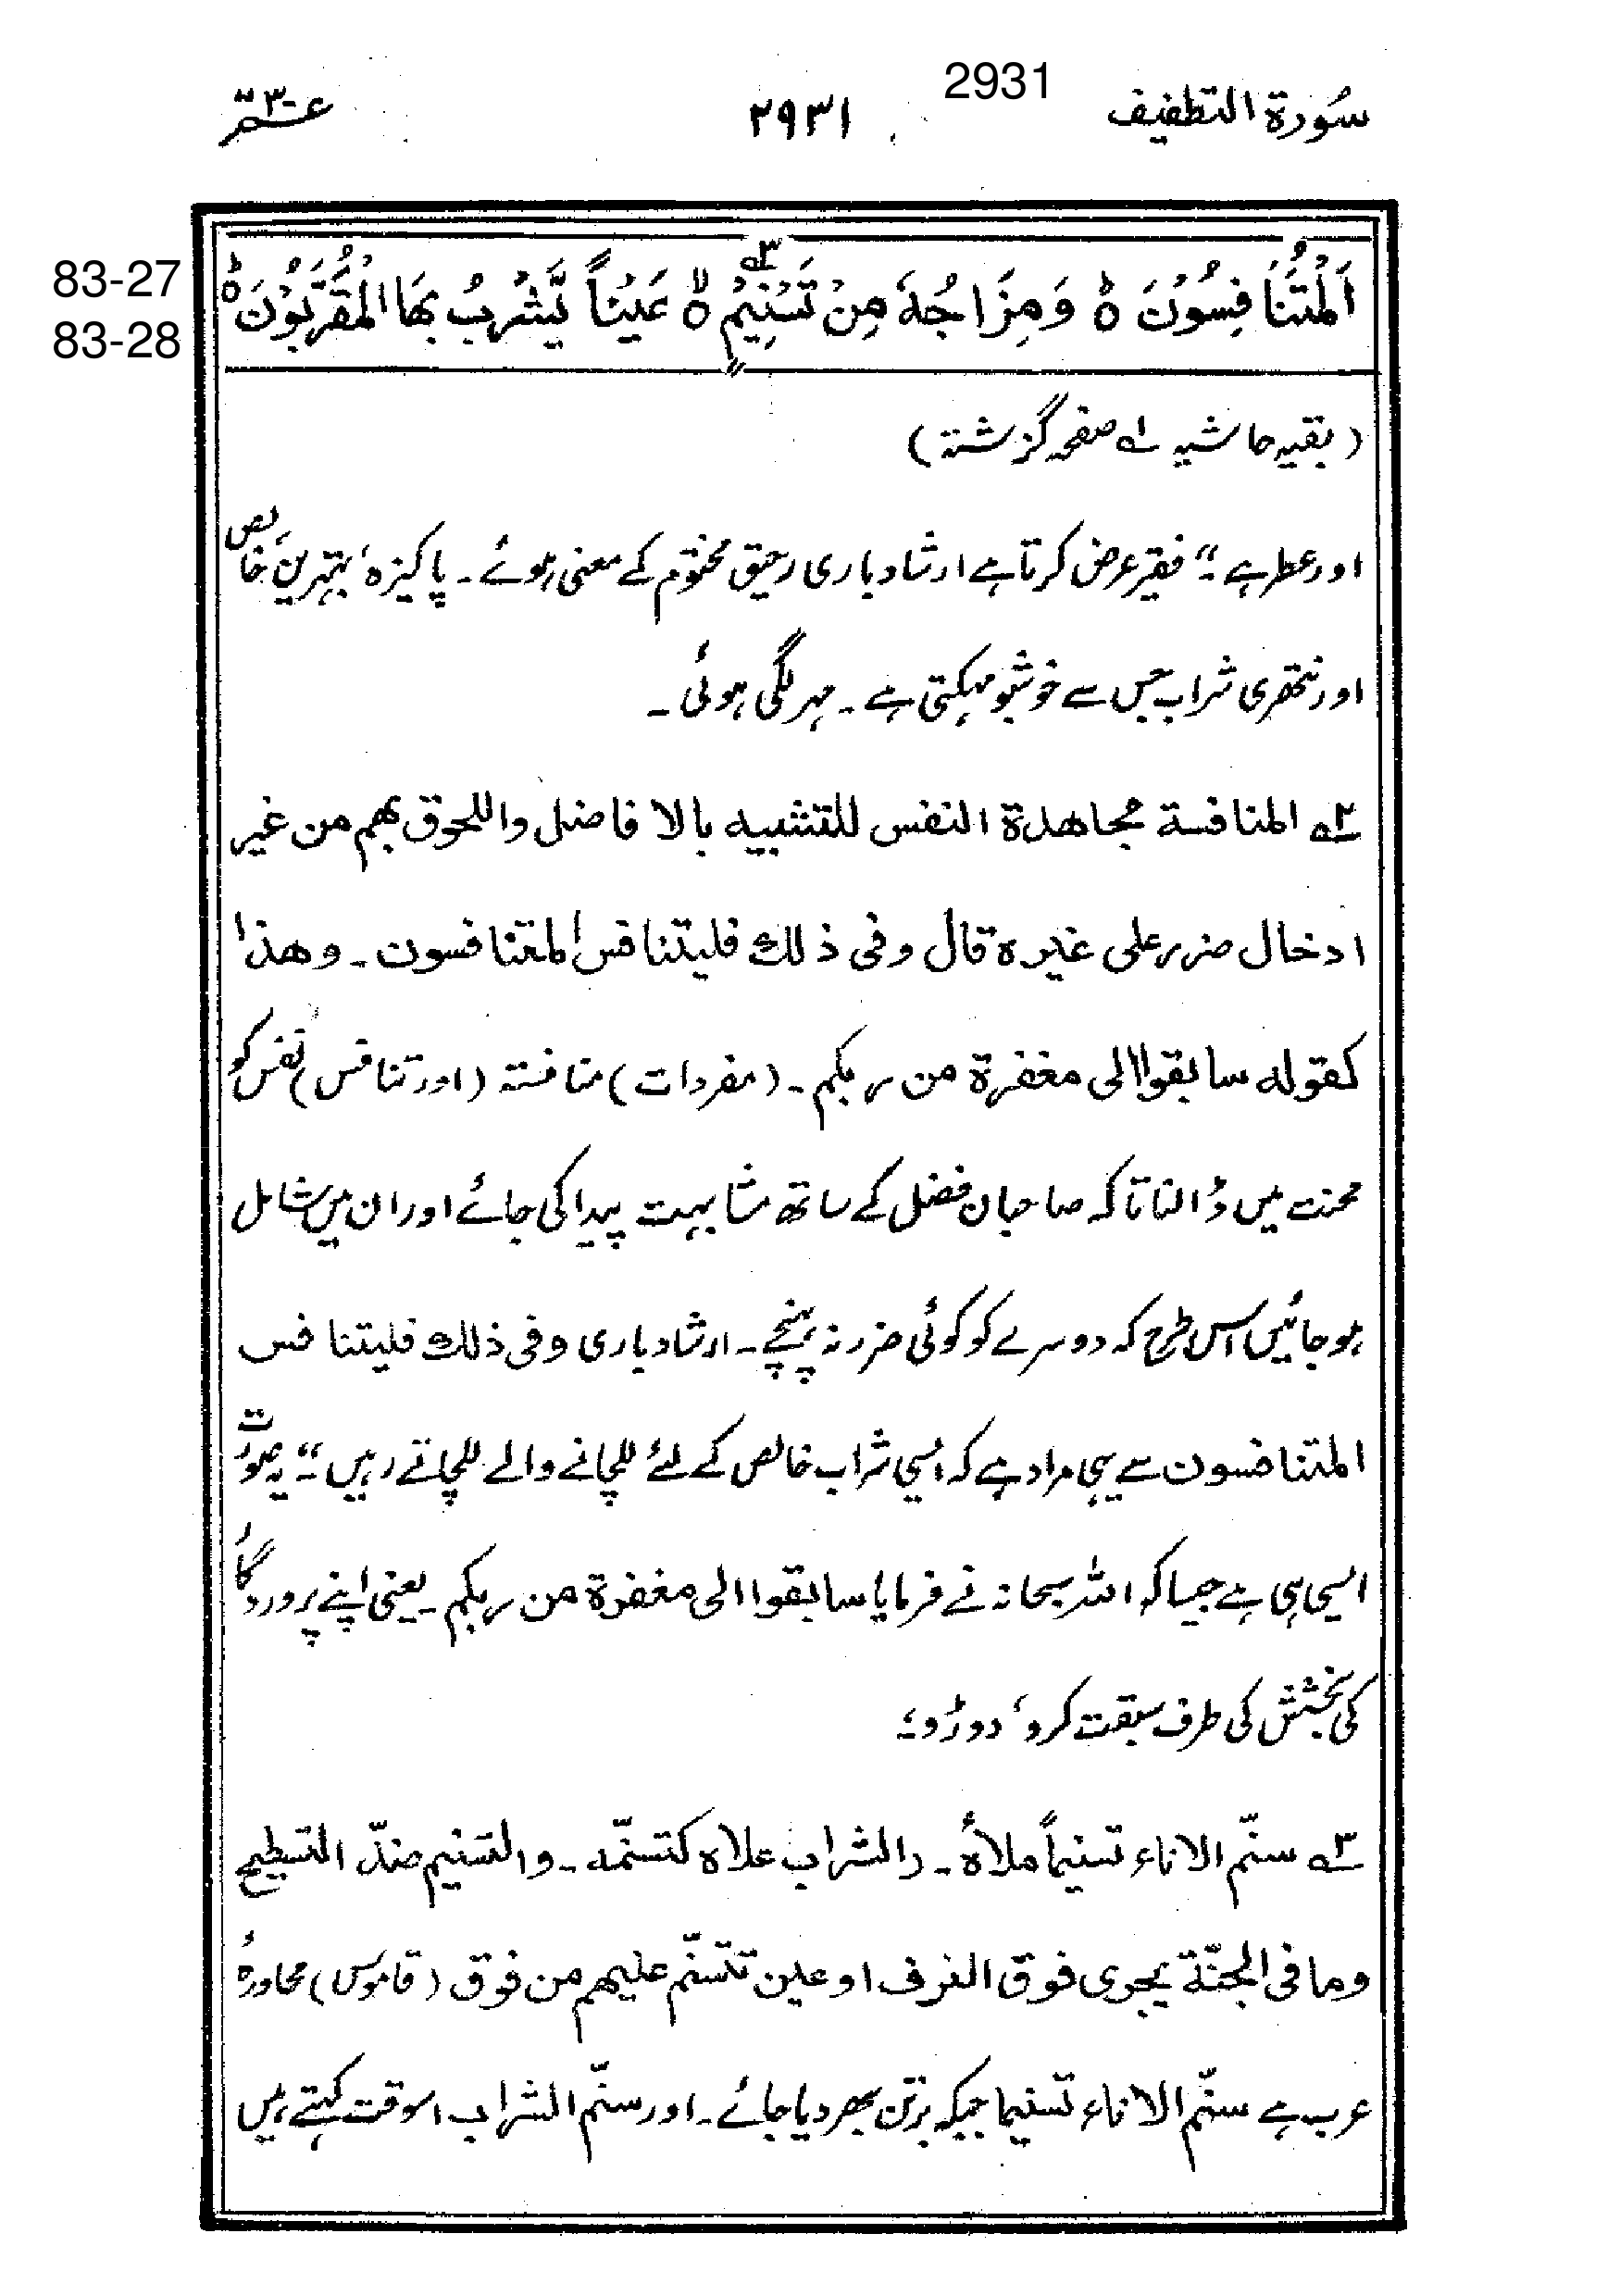 سُورة التطفیف ۲۹۳۱ 2931 عمّ۳۰
83-27
83-28
اَلْمُتَنَافِسُوْنَ ۝ؕ وَمِزَاجُهٗ مِنْ تَسْنِيْمٍ۳؎ ۝ۙ عَيْنًا يَّشْرَبُ بِهَا الْمُقَرَّبُوْنَ ۝ؕ
(بقیہ حاشیہ ۱؎ صفحہ گزشتہ)
اور عطر ہے۔“ فقیر عرض کرتا ہے ارشاد باری رحیق مختوم کے معنی ہوئے۔ پاکیزہ، بہترین، خالص
اور نتھری شراب جس سے خوشبو مہکتی ہے۔ مہر لگی ہوئی۔
۲؎ المنافسة مجاهدة النفس للتشبیه بالا فاضل واللحوق بهم من غیر
ادخال ضرر علی غیره قال وفی ذلك فلیتنافس المتنافسون۔ وهذا
کقوله سابقوا الی مغفرة من ربکم۔ (مفردات) منافستہ (اور تنافس) نفس کو
محنت میں ڈالنا تاکہ صاحبان فضل کے ساتھ مشابہت پیدا کی جائے اور ان میں شامل
ہوجائیں اس طرح کہ دوسرے کو کوئی ضرر نہ پہنچے۔ ارشاد باری وفی ذلك فلیتنافس
المتنافسون سے یہی مراد ہے کہ اُسی شراب خالص کے لئے للچانے والے للچاتے رہیں۔“ یہ صورت
ایسی ہی ہے جیسا کہ اللہ سبحانہ نے فرمایا سابقوا الی مغفرة من ربکم۔ یعنی اپنے پروردگار
کی بخشش کی طرف سبقت کرو، دوڑو؛
۳؎ سنّم الاناء تسنیماً ملأه۔ والشراب علاه کتسنّمه۔ والتسنیم ضدّ التسطیح
وما فی الجنّة یجری فوق الغرف او عین تتسنّم علیهم من فوق (قاموس) محاورہ
عرب ہے سنّم الاناء تسنیما جبکہ برتن بھر دیا جائے۔ اور سنّم الشراب اسوقت کہتے ہیں